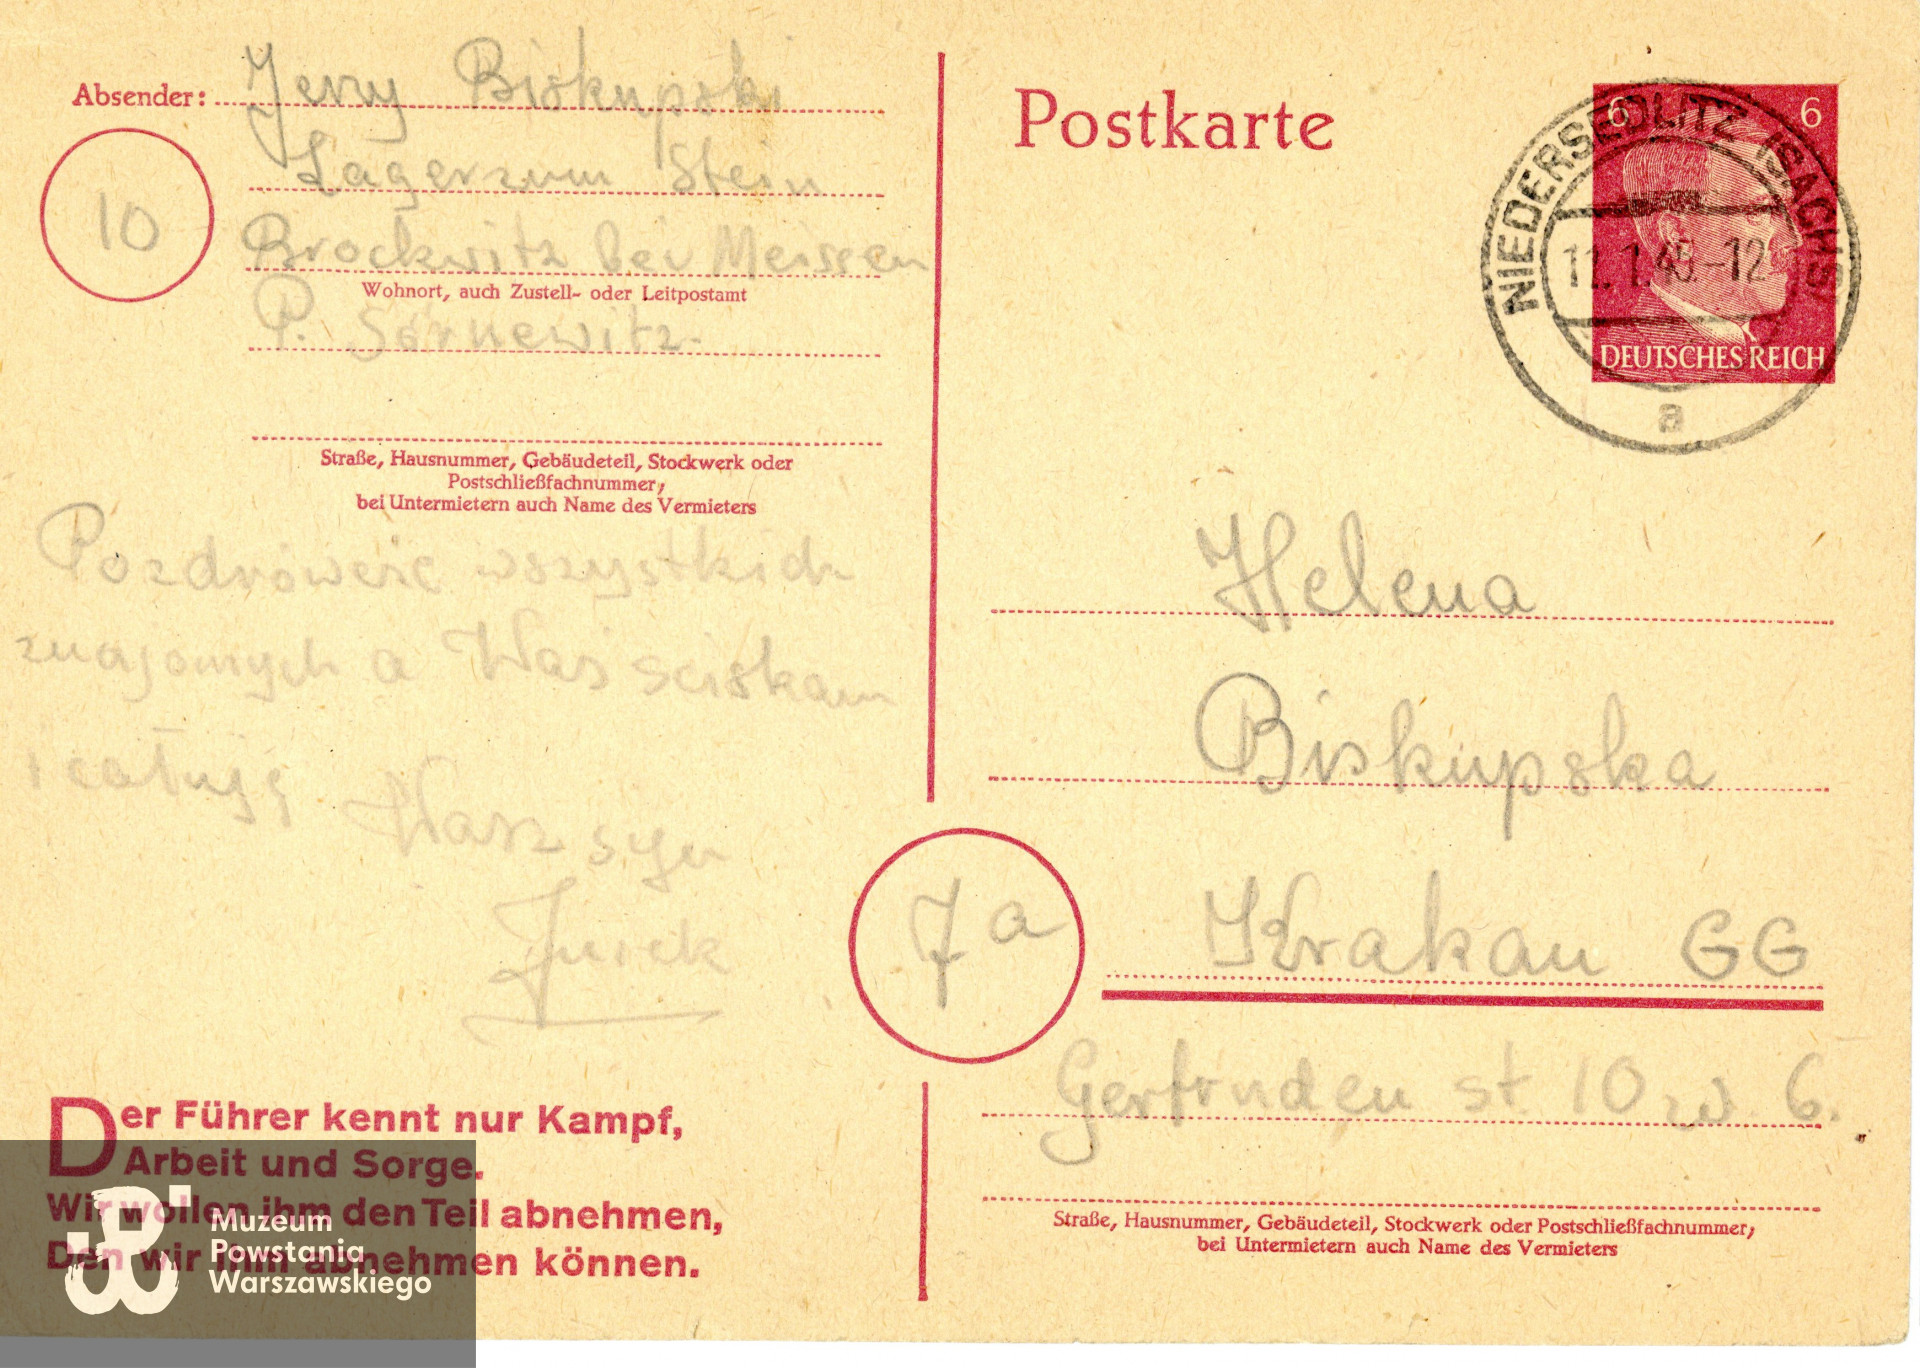 Absender: Jerzy Biskupski
Lager zum Stein
10
Brockwitz bei Meissen
Wohnort, auch Zustell- oder Leitpostamt
P. Sörnewitz.
Straße, Hausnummer, Gebäudeteil, Stockwerk oder
Postschließfachnummer;
bei Untermietern auch Name des Vermieters
Pozdrówcie wszystkich
znajomych a Was sciskam
i całuję
Wasz syn
Jurek
Der Führer kennt nur Kampf,
Arbeit und Sorge.
Wir wollen ihm den Teil abnehmen,
Den wir ihm abnehmen können.
Muzeum
Powstania
Warszawskiego
Postkarte
6 6
DEUTSCHES REICH
NIEDERSEDLITZ (SACHS)
11.1.45.-12
a
Helena
Biskupska
7a
Krakau GG
Gertruden st. 10 w 6.
Straße, Hausnummer, Gebäudeteil, Stockwerk oder Postschließfachnummer;
bei Untermietern auch Name des Vermieters